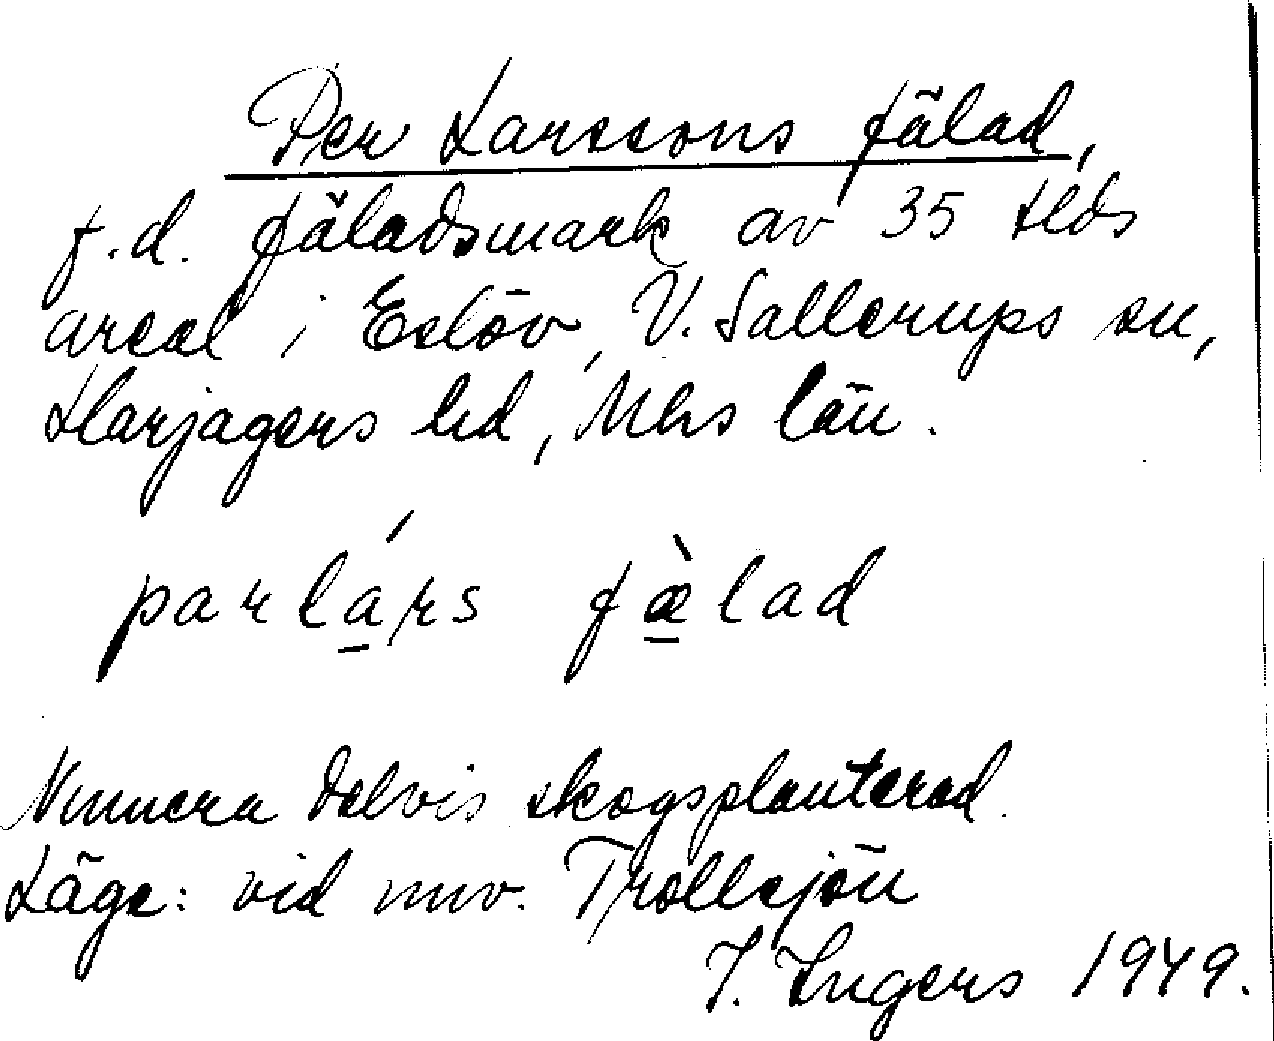 Per Larssons fälad,
f.d. fäladsmark av 35 tlds
areal i Eslöv, V. Sallerups sn,
Harjagers hd, Mhs län.
parlá̱rs fæ̱̀lad
Numera delvis skogsplanterad.
Läge: vid nuv. Trollsjön
I. Ingers 1949.